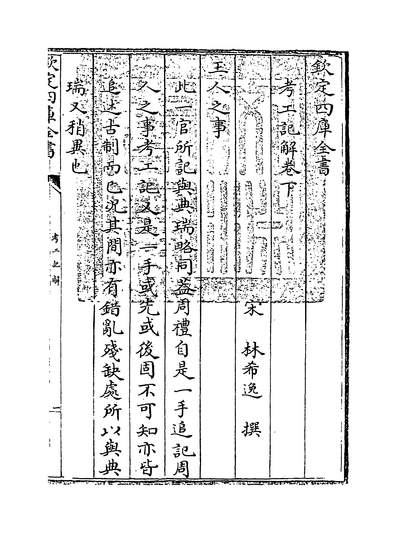 欽定四庫全書
考工記解卷下
宋 林希逸 撰
玉人之事
此一官所記與典瑞略同蓋周禮自是一手追記周
人之事考工記又是一手或先或後固不可知亦皆
追述古制而已況其間亦有錯亂殘缺處所以與典
瑞又稍異也
欽定四庫全書
考工記解